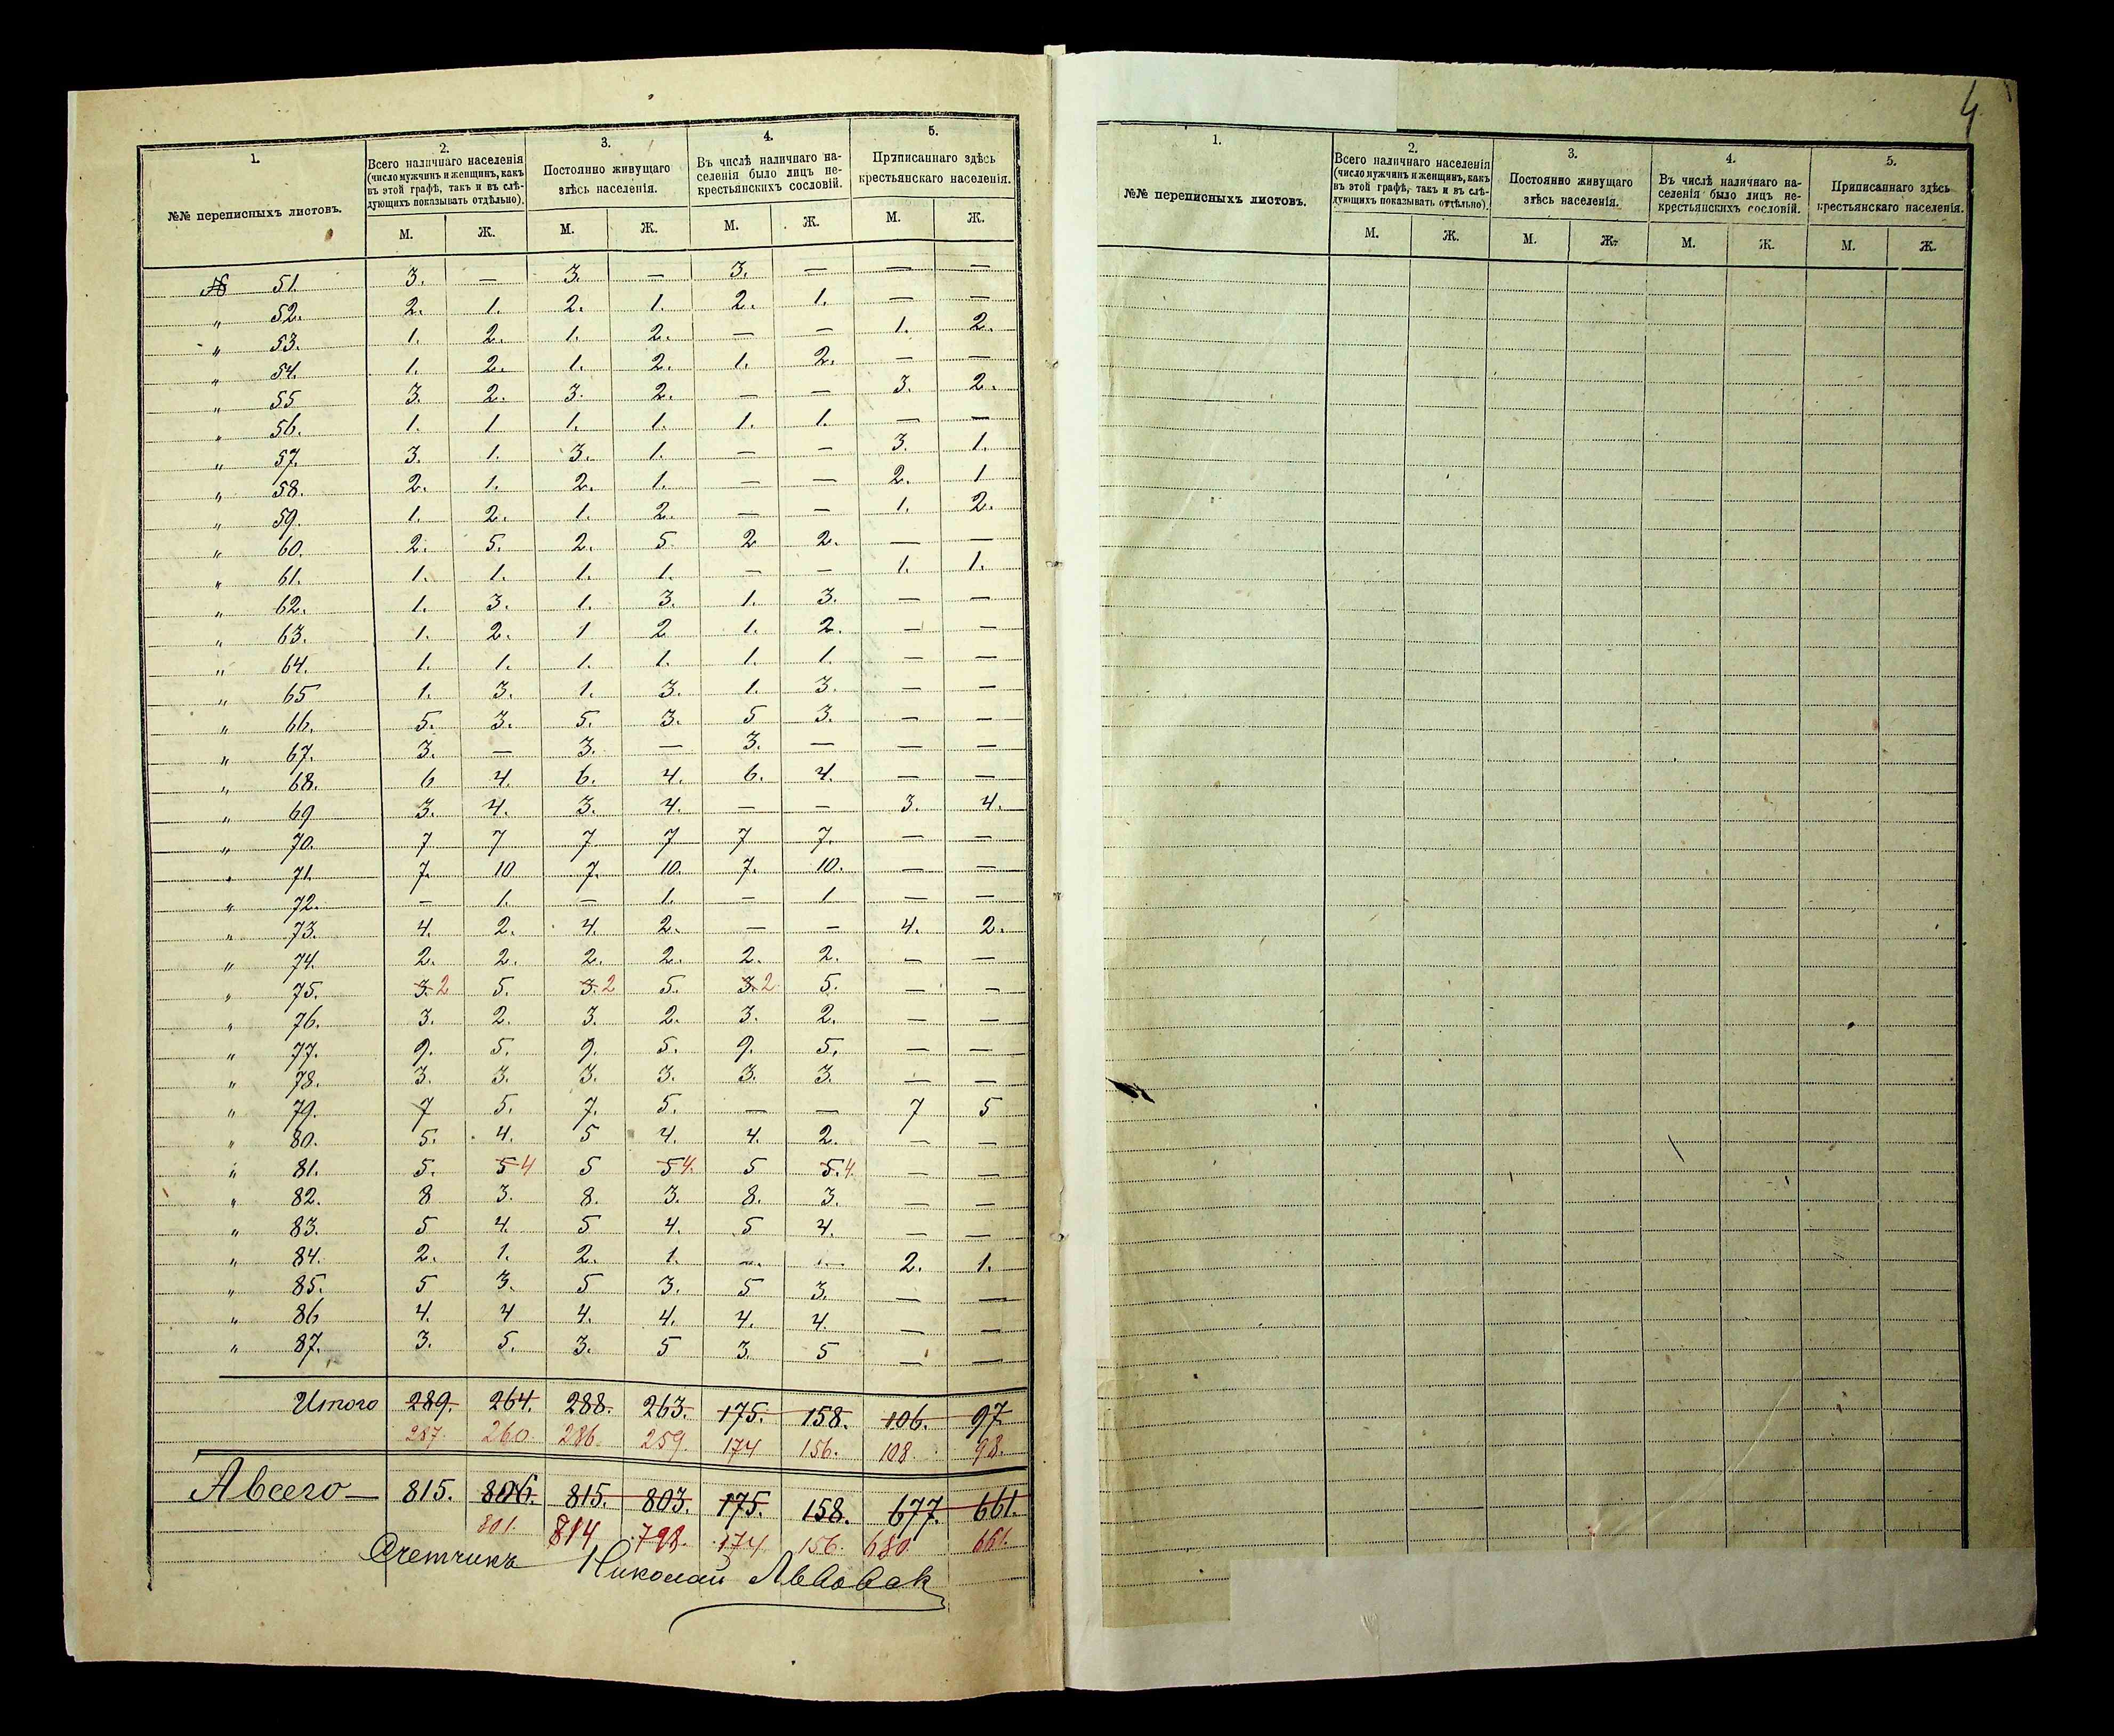 1.
№№ переписныхъ листовъ.
2.
Всего наличнаго населенія
(число мужчинъ и женщинъ, какъ
въ этой графѣ, такъ и въ слѣ-
дующихъ показывать отдѣльно).
3.
Постоянно живущаго
здѣсь населенія.
4.
Въ числѣ наличнаго на-
селенія было лицъ не-
крестьянскихъ сословій.
5.
Приписаннаго здѣсь
крестьянскаго населенія.
М. Ж. М. Ж. М. Ж. М. Ж.
№ 51. 3. — 3. — 3. — — —
„ 52. 2. 1. 2. 1. 2. 1. — —
„ 53. 1. 2. 1. 2. — — 1. 2.
„ 54. 1. 2. 1. 2. 1. 2. — —
„ 55 3. 2. 3. 2. — — 3. 2.
„ 56. 1. 1 1. 1. 1. 1. — —
„ 57. 3. 1. 3. 1. — — 3. 1.
„ 58. 2. 1. 2. 1. — — 2. 1
„ 59. 1. 2. 1. 2. — — 1. 2.
„ 60. 2. 5. 2. 5 2 2. — —
„ 61. 1. 1. 1. 1. — — 1. 1.
„ 62. 1. 3. 1. 3. 1. 3. — —
„ 63. 1. 2. 1 2 1. 2. — —
„ 64. 1. 1. 1. 1. 1. 1. — —
„ 65 1. 3. 1. 3. 1. 3. — —
„ 66. 5. 3. 5. 3. 5 3. — —
„ 67. 3. — 3. — 3. — — —
„ 68. 6 4. 6. 4. 6. 4. — —
„ 69 3. 4. 3. 4. — — 3. 4.
„ 70. 7 7 7 7 7 7. — —
„ 71. 7. 10 7. 10. 7. 10. — —
„ 72. — 1. — 1. — 1 — —
„ 73. 4. 2. 4. 2. — — 4. 2.
„ 74. 2. 2. 2. 2. 2. 2. — —
„ 75. 3. 2 5. 3. 2 5. 3. 2 5. — —
„ 76. 3. 2. 3. 2. 3. 2. — —
„ 77. 9. 5. 9. 5. 9. 5. — —
„ 78. 3. 3. 3. 3. 3. 3. — —
„ 79. 7 5. 7. 5. — — 7 5
„ 80. 5. 4. 5 4. 4. 2. — —
„ 81. 5. 5 4 5 5 4. 5 5. 4. — —
„ 82. 8 3. 8. 3. 8. 3. — —
„ 83. 5 4. 5 4. 5 4. — —
„ 84. 2. 1. 2. 1. 2. 1.
„ 85. 5 3. 5 3. 5 3. — —
„ 86 4. 4 4. 4. 4. 4. — —
„ 87. 3. 5. 3. 5 3. 5 — —
Итого 289. 264. 288. 263. 175. 158. 106. 97
287. 260. 286. 259. 174 156. 108. 98.
А всего — 815. 806. 815. 803. 175. 158. 677. 661.
801. 814 798. 174 156. 680 661.
Счетчикъ Николай
4
1.
№№ переписныхъ листовъ.
2.
Всего наличнаго населенія
(число мужчинъ и женщинъ, какъ
въ этой графѣ, такъ и въ слѣ-
дующихъ показывать отдѣльно).
3.
Постоянно живущаго
здѣсь населенія.
4.
Въ числѣ наличнаго на-
селенія было лицъ не-
крестьянскихъ сословій.
5.
Приписаннаго здѣсь
крестьянскаго населенія.
М. Ж. М. Ж. М. Ж. М. Ж.